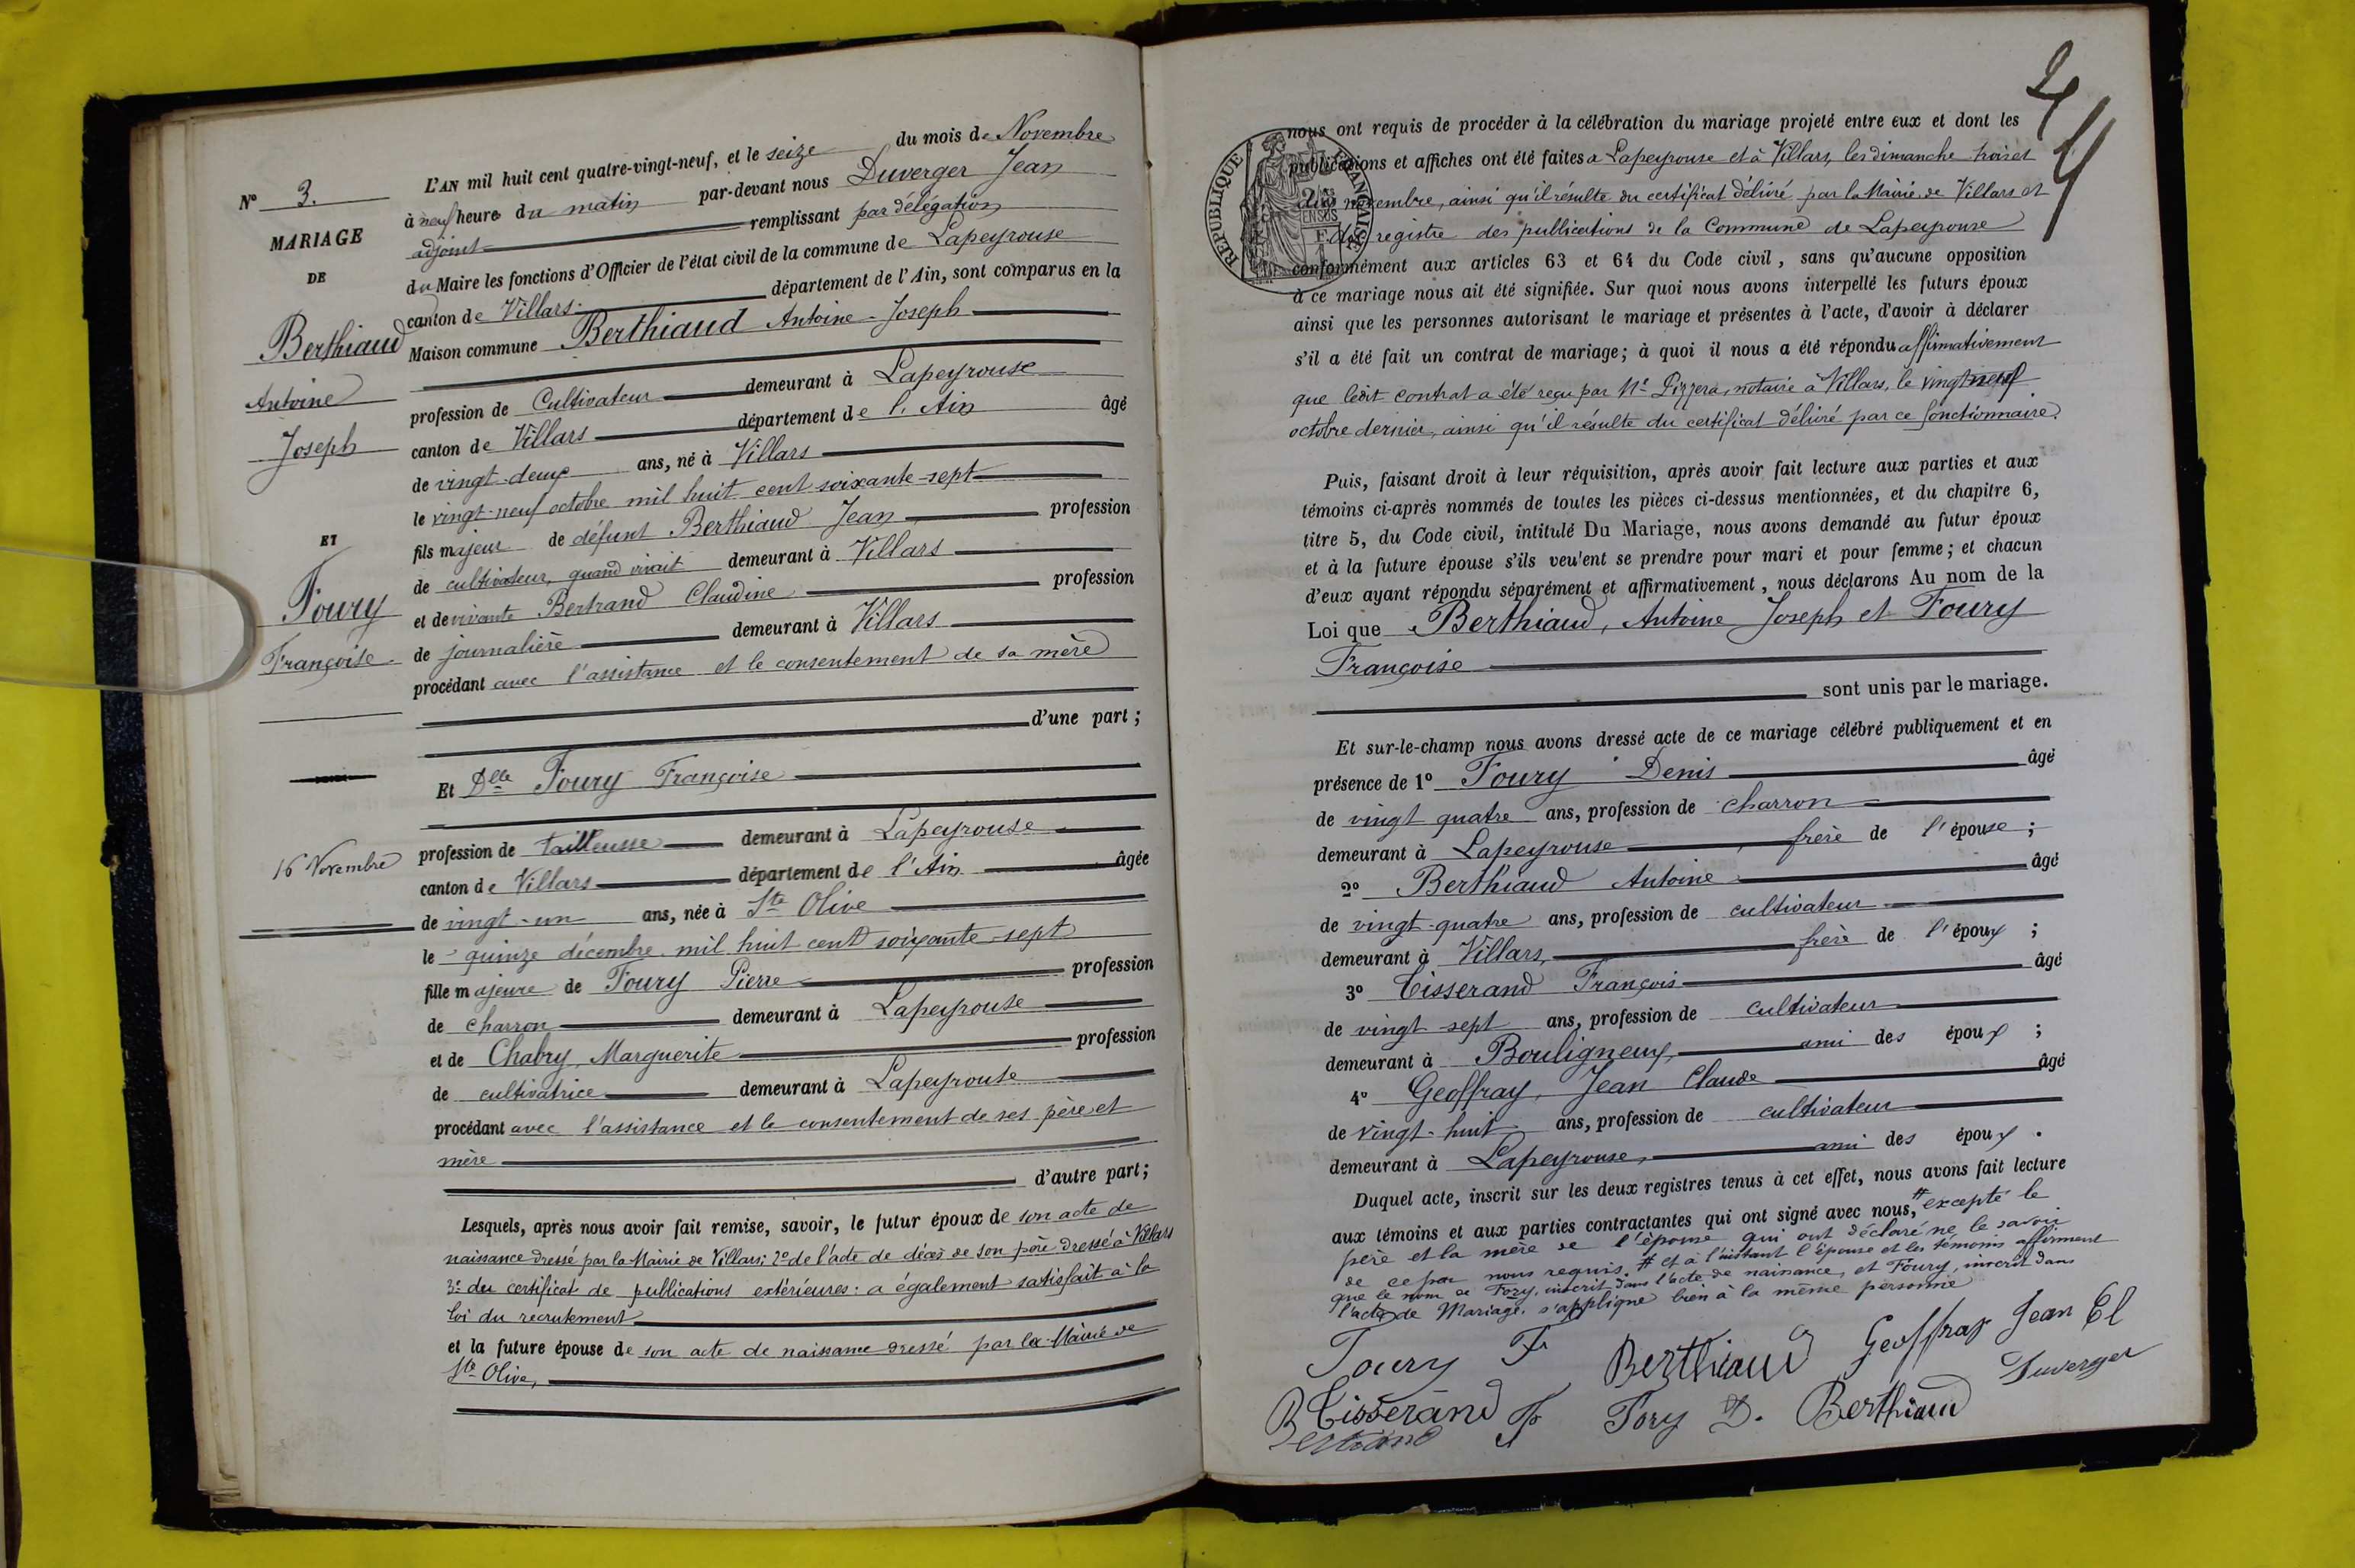 Nº 3.
MARIAGE
DE
Berthiaud
Antoine
Joseph
ET
Foury
Françoise
16 Novembre
L'AN mil huit cent quatre-vingt-neuf, et le seize du mois de Novembre
à neuf heure du matin par-devant nous Duverger Jean
adjoint remplissant par délégation
du Maire les fonctions d'Officier de l'état civil de la commune de Lapeyrouse
canton de Villars département de l'Ain, sont comparus en la
Maison commune Berthiaud Antoine-Joseph
profession de Cultivateur demeurant à Lapeyrouse
canton de Villars département de l'Ain âgé
de vingt-deux ans, né à Villars
le vingt-neuf octobre mil huit cent soixante-sept
fils majeur de défunt Berthiaud Jean profession
de cultivateur, quand vivait demeurant à Villars
et de vivante Bertrand Claudine profession
de journalière demeurant à Villars
procédant avec l'assistance et le consentement de sa mère
d'une part ;
Et Dlle Foury Françoise
profession de tailleuse demeurant à Lapeyrouse
canton de Villars département de l'Ain âgée
de vingt-un ans, née à Ste Olive
le quinze décembre mil huit cent soixante-sept
fille majeure de Foury Pierre profession
de charron demeurant à Lapeyrouse
et de Chabry, Marguerite profession
de cultivatrice demeurant à Lapeyrouse
procédant avec l'assistance et le consentement de ses père et
mère
d'autre part ;
Lesquels, après nous avoir fait remise, savoir, le futur époux de son acte de
naissance dressé par la Mairie de Villars ; 2º de l'acte de décès de son père dressé à Villars
3º du certificat de publications extérieures : a également satisfait à la
loi du recrutement
et la future épouse de son acte de naissance dressé par la Mairie de
Ste Olive,
RÉPUBLIQUE FRANÇAISE
nous ont requis de procéder à la célébration du mariage projeté entre eux et dont les
publications et affiches ont été faites a Lapeyrouse et à Villars, les dimanche trois et
dix novembre, ainsi qu'il résulte du certificat délivré par la Mairie de Villars et
du registre des publications de la Commune de Lapeyrouse
conformément aux articles 63 et 64 du Code civil, sans qu'aucune opposition
à ce mariage nous ait été signifiée. Sur quoi nous avons interpellé les futurs époux
ainsi que les personnes autorisant le mariage et présentes à l'acte, d'avoir à déclarer
s'il a été fait un contrat de mariage ; à quoi il nous a été répondu affirmativement
que ledit contrat a été reçu par Me Pizzera, notaire à Villars, le vingt neuf
octobre dernier, ainsi qu'il résulte du certificat délivré par ce fonctionnaire.
Puis, faisant droit à leur réquisition, après avoir fait lecture aux parties et aux
témoins ci-après nommés de toutes les pièces ci-dessus mentionnées, et du chapitre 6,
titre 5, du Code civil, intitulé Du Mariage, nous avons demandé au futur époux
et à la future épouse s'ils veu'ent se prendre pour mari et pour femme ; et chacun
d'eux ayant répondu séparément et affirmativement, nous déclarons Au nom de la
Loi que Berthiaud, Antoine Joseph et Foury
Françoise
sont unis par le mariage.
Et sur-le-champ nous avons dressé acte de ce mariage célébré publiquement et en
présence de 1º Foury Denis âgé
de vingt quatre ans, profession de charron
demeurant à Lapeyrouse, frère de l'épouse ;
2º Berthiaud Antoine âgé
de vingt-quatre ans, profession de cultivateur
demeurant à Villars, frère de l'époux ;
3º Tisserand François âgé
de vingt-sept ans, profession de cultivateur
demeurant à Bouligneux, ami des époux ;
4º Geoffray, Jean Claude âgé
de vingt-huit ans, profession de cultivateur
demeurant à Lapeyrouse, ami des époux .
Duquel acte, inscrit sur les deux registres tenus à cet effet, nous avons fait lecture
aux témoins et aux parties contractantes qui ont signé avec nous, # excepté le
père et la mère de l'épouse qui ont déclaré ne le savoir
de ce par nous requis. # et à l'instant l'épouse et les témoins affirment
que le nom de Fory, inscrit dans l'acte de naissance, et Foury, inscrit dans
l'acte de Mariage, s'applique bien à la même personne
Foury F Berthiaud Geoffray Jean Cl
Tisserand F Fory D. Berthiaud Duverger
Bertrand